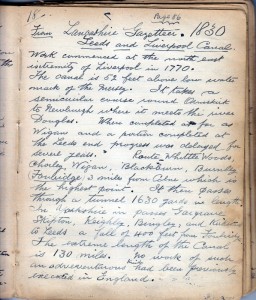 18
Page 56
From Lancashire Gazetteer. 1830
Leeds and Liverpool Canal.
Work commenced at the north east
extremity of Liverpool in 1770.
The canal is 52 feet above low water
mark of the Mersey. It takes a
semicircular course round Ormskirk
to Newburgh where it meets the river
Douglas. When completed as far as
Wigan and a portion completed at
the Leeds end, progress was delayed for
several years. Route Whittle Woods,
Chorley, Wigan, Blackburn, Burnley
Foulridge 3 miles from Colne which is
the highest point. It then passes
through a tunnel 1630 yards in length.
In Yorkshire it passes Gargrave
Skipton, Keighley, Bingley, and
to Leeds a fall of 400 feet from Foulridge.
The extreme length of the Canal
is 130 miles. No work of such
an adventurous had been previously
executed in England.